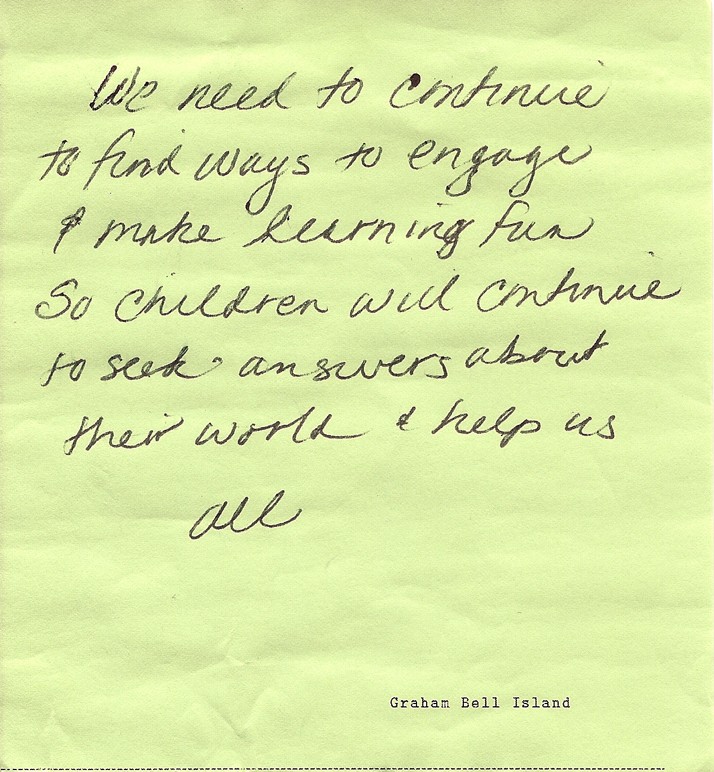 We need to continue
to find ways to engage
& make learning fun
So children will continue
to seek answers about
their world & help us
all
Graham Bell Island